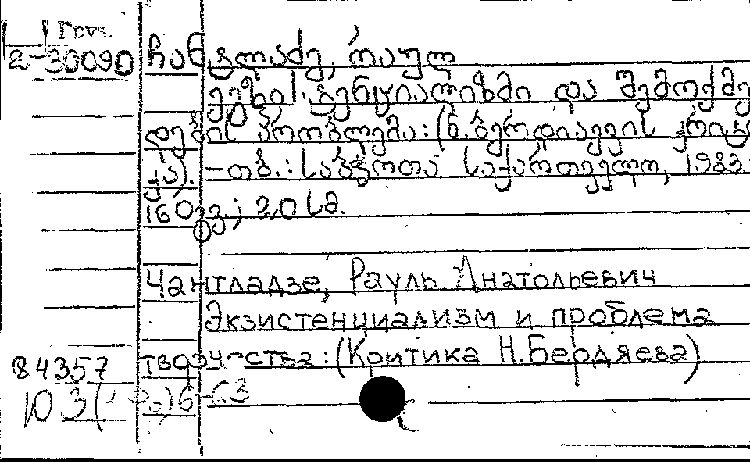 Груз.
2-30090 ჩანტლაძე, რაულ
ეგზისტენციალიზმი და შემოქმე
დების პრობლემა: (ნ. ბერდიაევის კრიტი
კა). - თბ.: საბჭოთა საქართველო, 1983.
160 გვ; 20 სმ.
Чантладзе, Рауль Анатольевич
Экзистенциализм и проблема
84357 творчества: (Критика Н. Бердяева)